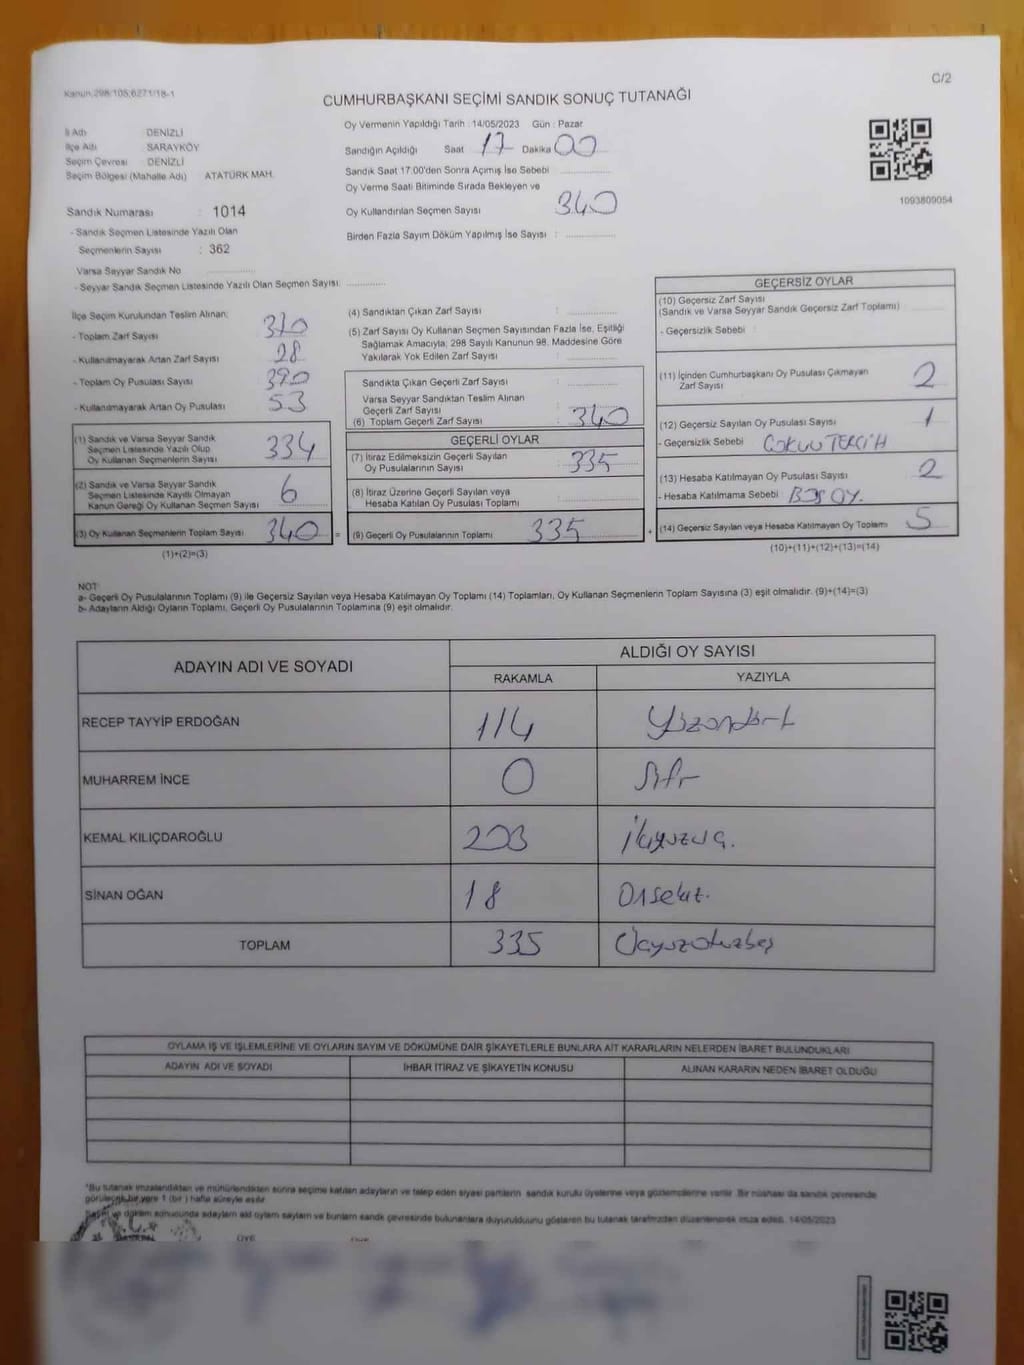 Kanun 298/105;6271/18-1
C/2
CUMHURBAŞKANI SEÇİMİ SANDIK SONUÇ TUTANAĞI
İl Adı : DENİZLİ
İlçe Adı : SARAYKÖY
Seçim Çevresi : DENİZLİ
Seçim Bölgesi (Mahalle Adı) ATATÜRK MAH.
Sandık Numarası : 1014
- Sandık Seçmen Listesinde Yazılı Olan
Seçmenlerin Sayısı : 362
Varsa Seyyar Sandık No
- Seyyar Sandık Seçmen Listesinde Yazılı Olan Seçmen Sayısı:
Oy Vermenin Yapıldığı Tarih : 14/05/2023 Gün : Pazar
Sandığın Açıldığı Saat 17 Dakika 00
Sandık Saat 17:00'den Sonra Açımış İse Sebebi
Oy Verme Saati Bitiminde Sırada Bekleyen ve
Oy Kullandırılan Seçmen Sayısı 340
Birden Fazla Sayım Döküm Yapılmış İse Sayısı :
1093809054
İlçe Seçim Kurulundan Teslim Alınan:
- Toplam Zarf Sayısı
- Kullanılmayarak Artan Zarf Sayısı 28
- Toplam Oy Pusulası Sayısı 390
- Kullanılmayarak Artan Oy Pusulası 53
(1) Sandık ve Varsa Seyyar Sandık
Seçmen Listesinde Yazılı Olup
Oy Kullanan Seçmenlerin Sayısı 334
(2) Sandık ve Varsa Seyyar Sandık
Seçmen Listesinde Kayıtlı Olmayan
Kanun Gereği Oy Kullanan Seçmen Sayısı 6
(3) Oy Kullanan Seçmenlerin Toplam Sayısı 340 =
(1)+(2)=(3)
(4) Sandıktan Çıkan Zarf Sayısı :
(5) Zarf Sayısı Oy Kullanan Seçmen Sayısından Fazla İse, Eşitliği
Sağlamak Amacıyla; 298 Sayılı Kanunun 98. Maddesine Göre
Yakılarak Yok Edilen Zarf Sayısı :
Sandıkta Çıkan Geçerli Zarf Sayısı :
Varsa Seyyar Sandıktan Teslim Alınan
Geçerli Zarf Sayısı :
(6) Toplam Geçerli Zarf Sayısı : 340
GEÇERLİ OYLAR
(7) İtiraz Edilmeksizin Geçerli Sayılan
Oy Pusulalarının Sayısı : 335
(8) İtiraz Üzerine Geçerli Sayılan veya
Hesaba Katılan Oy Pusulası Toplamı
(9) Geçerli Oy Pusulalarının Toplamı 335 +
GEÇERSİZ OYLAR
(10) Geçersiz Zarf Sayısı
(Sandık ve Varsa Seyyar Sandık Geçersiz Zarf Toplamı)
- Geçersizlik Sebebi :
(11) İçinden Cumhurbaşkanı Oy Pusulası Çıkmayan
Zarf Sayısı 2
(12) Geçersiz Sayılan Oy Pusulası Sayısı 1
- Geçersizlik Sebebi TERCİH
(13) Hesaba Katılmayan Oy Pusulası Sayısı 2
- Hesaba Katılmama Sebebi BOŞ OY.
(14) Geçersiz Sayılan veya Hesaba Katılmayan Oy Toplamı 5
(10)+(11)+(12)+(13)=(14)
NOT:
a- Geçerli Oy Pusulalarının Toplamı (9) ile Geçersiz Sayılan veya Hesaba Katılmayan Oy Toplamı (14) Toplamları, Oy Kullanan Seçmenlerin Toplam Sayısına (3) eşit olmalıdır. (9)+(14)=(3)
b- Adayların Aldığı Oyların Toplamı, Geçerli Oy Pusulalarının Toplamına (9) eşit olmalıdır.
ADAYIN ADI VE SOYADI ALDIĞI OY SAYISI
RAKAMLA YAZIYLA
RECEP TAYYİP ERDOĞAN 114 Yüzondört
MUHARREM İNCE 0 Sıfır
KEMAL KILIÇDAROĞLU 203 İkiyüzüç.
SİNAN OĞAN 18 Onsekiz.
TOPLAM 335 Üçyüzotuzbeş
OYLAMA İŞ VE İŞLEMLERİNE VE OYLARIN SAYIM VE DÖKÜMÜNE DAİR ŞİKAYETLERLE BUNLARA AİT KARARLARIN NELERDEN İBARET BULUNDUKLARI
ADAYIN ADI VE SOYADI İHBAR İTİRAZ VE ŞİKAYETİN KONUSU ALINAN KARARIN NEDEN İBARET OLDUĞU
*Bu tutanak imzalandıktan ve mühürlendikten sonra seçime katılan adayların ve talep eden siyasi partilerin sandık kurulu üyelerine veya gözlemcilerine verilir. Bir nüshası da sandık çevresinde
görülecek bir yere 1 (bir) hafta süreyle asılır.
döküm sonucunda adayların oyların sayısını ve bunların sandık çevresinde bulunanlara duyurulduğunu gösteren bu tutanak tarafımızdan düzenlenerek imza edildi. 14/05/2023
ÜYE